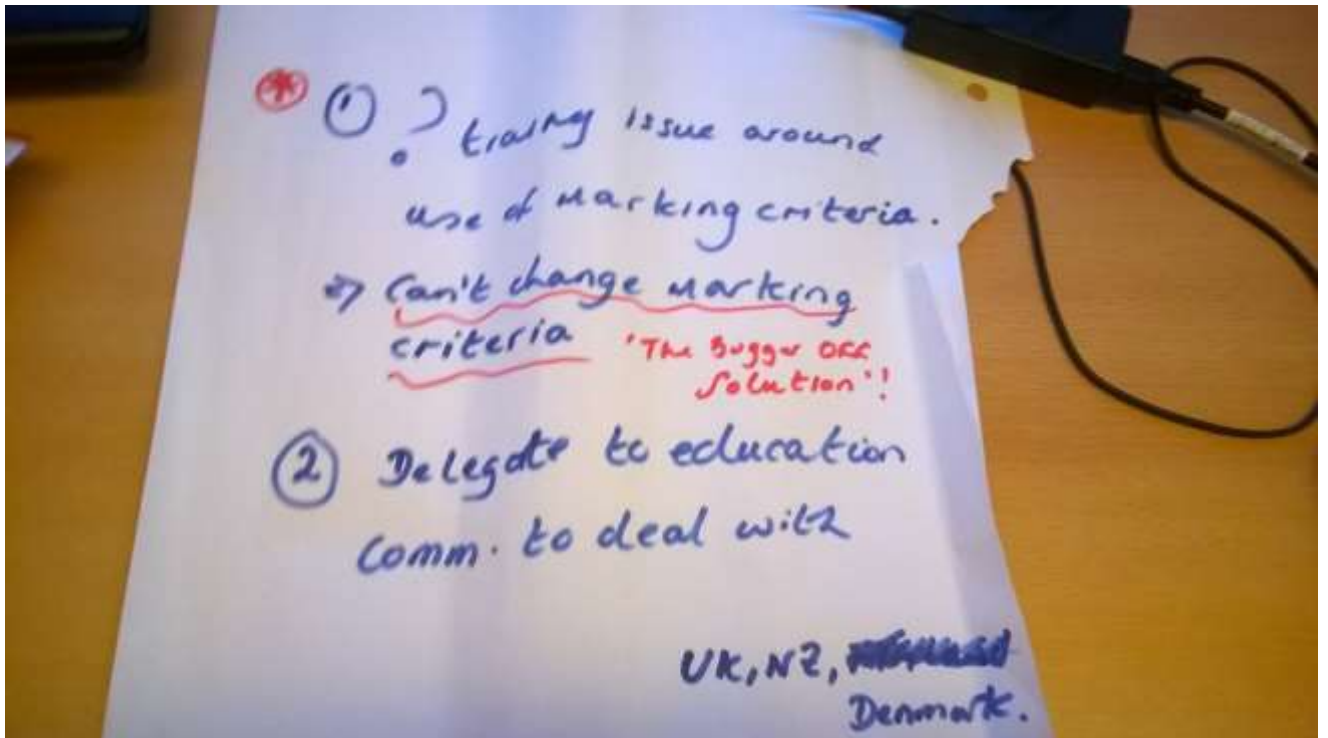 ① ? training issue around
use of marking criteria.
⇒ Can't change marking
criteria 'The Bugger off
Solution'!
② Delegate to education
Comm. to deal with
UK, NZ,
Denmark.